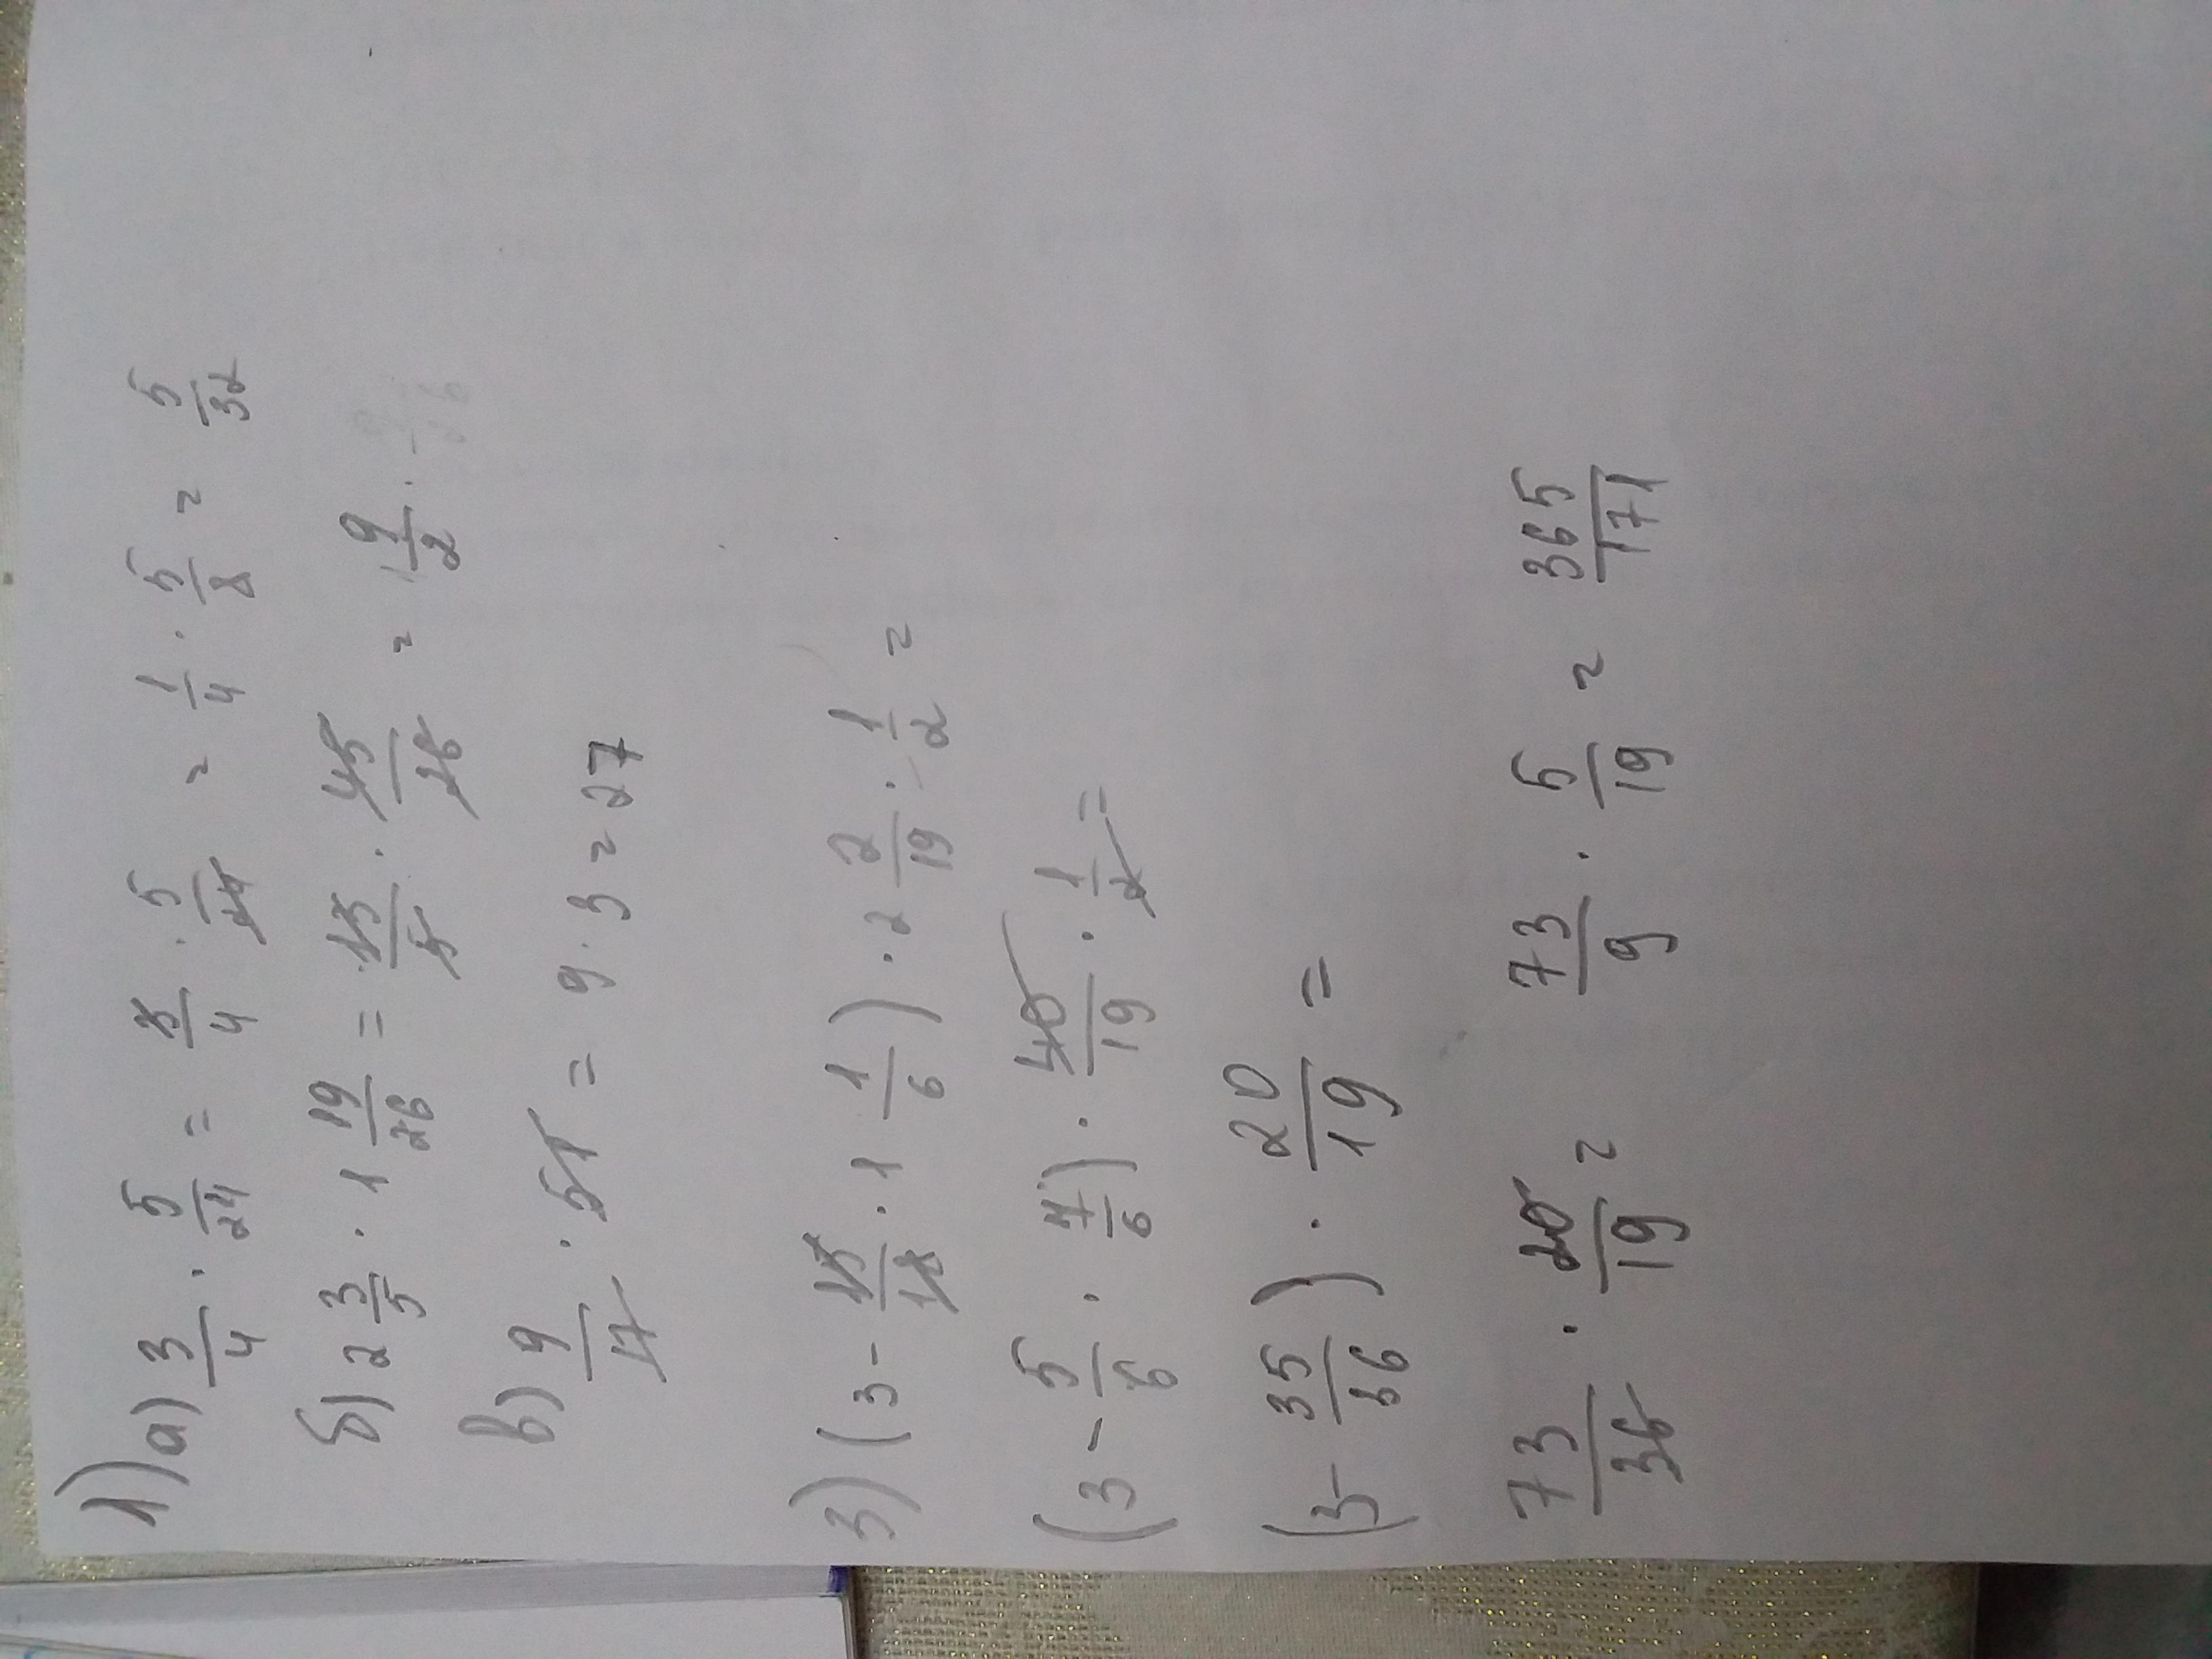 1) а) 3/4 · 5/24 = 3/4 · 5/24 = 1/4 · 5/8 = 5/32
б) 2 3/5 · 1 19/26 = 13/5 · 45/26 = 9/2
в) 9/17 · 51 = 9 · 3 = 27
3) (3 - 15/18 · 1 1/6) · 2 2/19 · 1/2 =
(3 - 5/6 · 7/6) · 40/19 · 1/2 =
(3 - 35/36) · 20/19 =
73/36 · 20/19 = 73/9 · 5/19 = 365/171